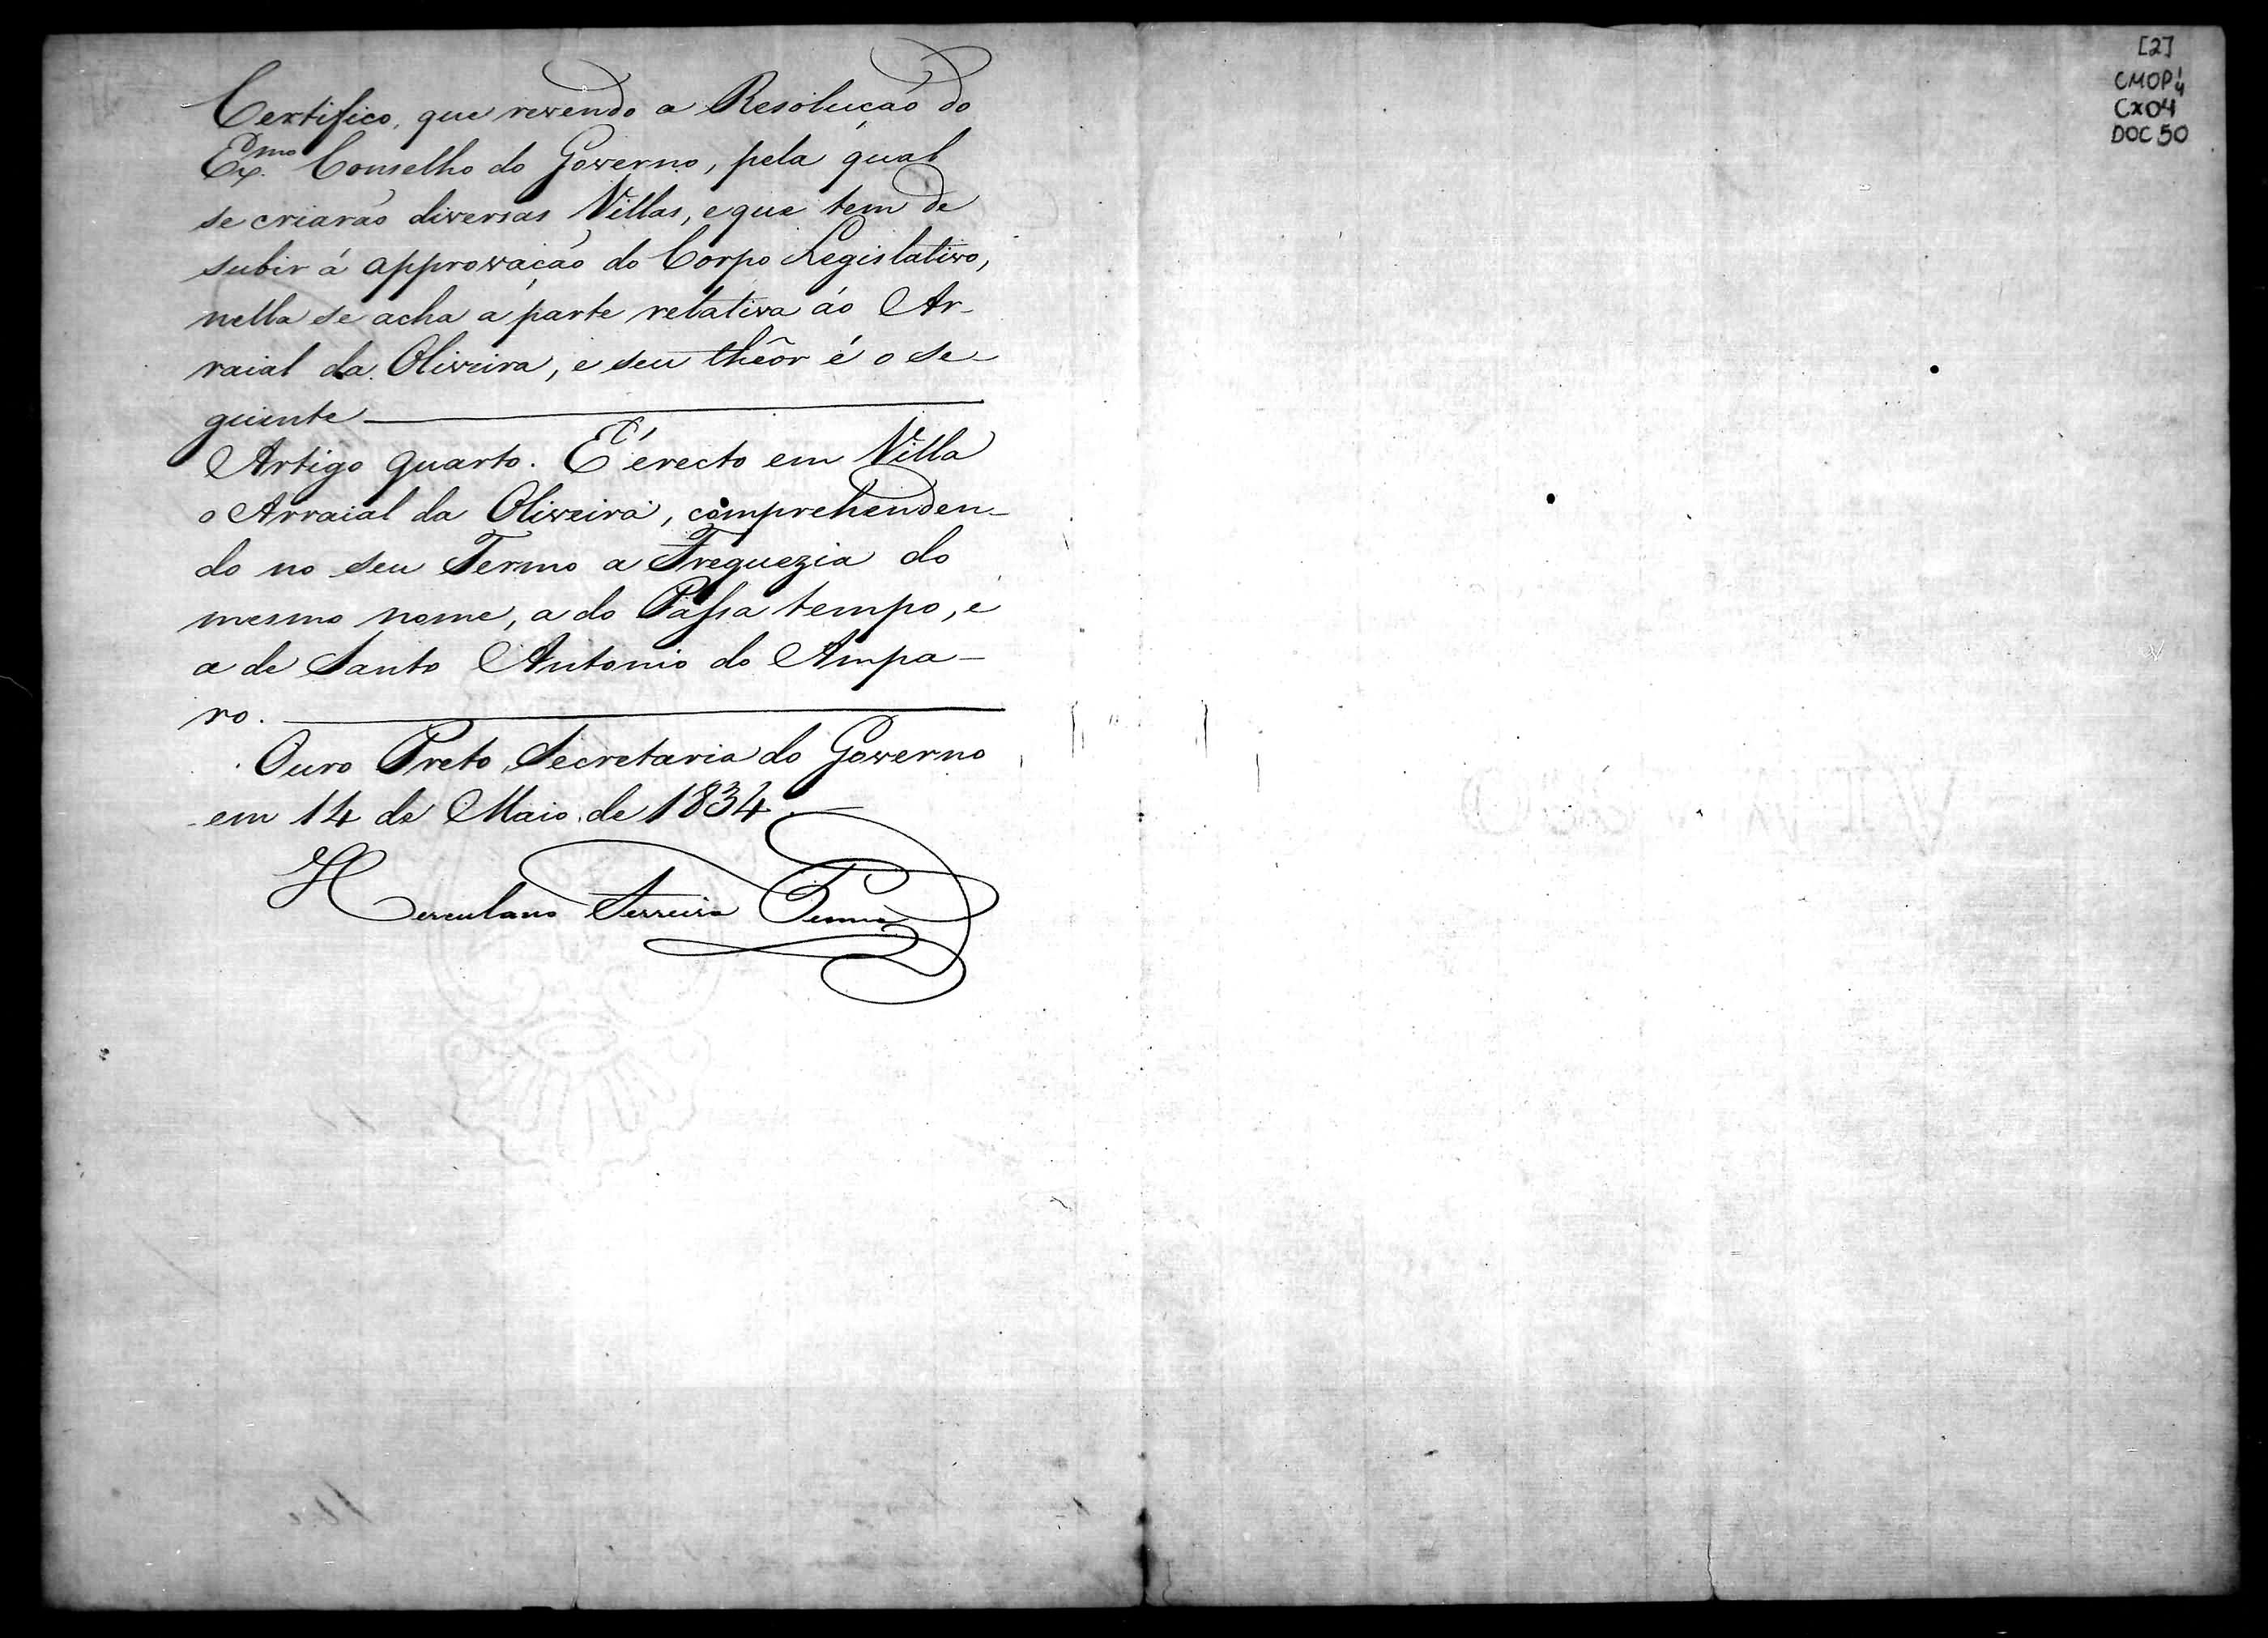 Certifico, que revendo a Resolução do
Ex.mo Conselho do Governo, pela qual
se criarão diversas Villas, e que tem de
subir á approvação do Corpo Legislativo,
nella se acha a parte relativa ao Ar-
raial da Oliveira, e seu thêor é o se-
guinte
Artigo quarto. É erecto em Villa
o Arraial da Oliveira, comprehenden-
do no seu Termo a Freguezia do
mesmo nome, a do Passa tempo, e
a de Santo Antonio do Ampa-
ro.
Ouro Preto, Secretaria do Governo
em 14 de Maio de 1834.
Herculano Ferreira Penna
[2]
CMOP 1/4
CX04
DOC 50